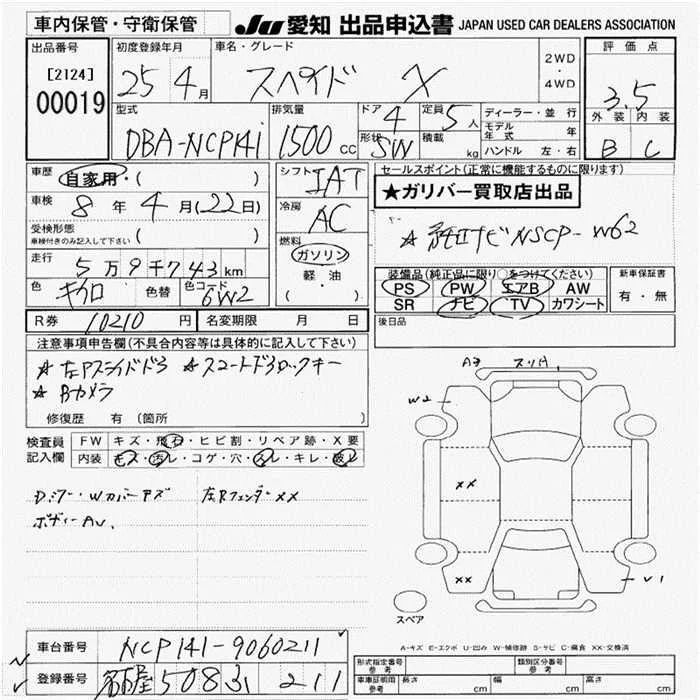 車内保管・守衛保管
JU 愛知 出品申込書 JAPAN USED CAR DEALERS ASSOCIATION
出品番号 初度登録年月 車名・グレード 評価点
[2124] 25 4月 スペイド X 2WD・4WD 3.5
00019
型式 排気量 ドア 4 定員 5人 ディーラー・並行 外装 内装
DBA-NCP141 1500cc 形状 SW 積載 kg モデル年式 年
ハンドル 左・右 B C
車歴 自家用・( ) シフト IAT セールスポイント(正常に機能するものに限ります)
★ガリバー買取店出品
車検 8年4月(22日) 冷房 AC
受検形態 ( ) ☆純正ナビNSCP-W62
車検付きのみ記入して下さい
燃料 ガソリン・軽・油
走行 5万9千743km 装備品(純正品に限り○をつけてください) 新車保証書
色 キクロ 色替 色コード 6W2 PS PW エアB AW 有・無
SR ナビ TV カワシート
R券 10210円 名変期限 月 日 後日品
注意事項申告欄(不具合内容等は具体的に記入して下さい)
☆左Pスライドドろ ☆スマートドろロックキー
☆Bカメラ
修復歴 有 (箇所 )
A3 スリ小
W2
検査員記入欄 FW キズ・飛石・ヒビ割・リペア跡・X要
内装 キズ・汚レ・コゲ・穴・スレ・キレ・破レ
左Rフェンダーxx
ボディーAU、
XX
XX V1
スペア
A-キズ E-エクボ U-凹み W-補修跡 S-サビ C-腐食 XX-交換済
車台番号 NCP141-9060211
登録番号 211
形式指定番号 参考 類別区分番号 参考
車庫証明用 参考 長さ cm 幅 cm 高さ cm